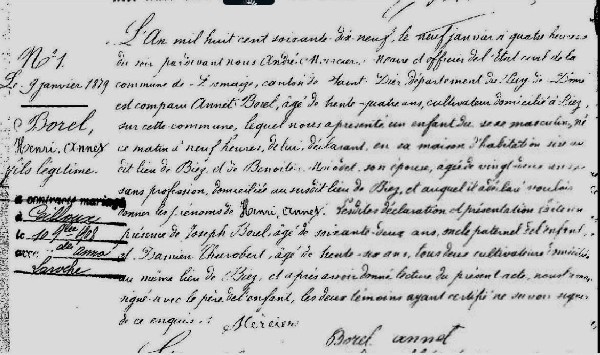 N° 1.
Le 9 janvier 1879
Borel,
Henri, Annet
fils légitime.
a contracté mariage
à
le 10 1908
avec
Laroche
L'An mil huit cent soixante dix-neuf, le neuf janvier à quatre heures
du soir pardevant nous André Mercier Maire et officier de l'Etat civil de la
commune de canton de Saint-Dier, département du Puy-de-Dôme
est comparu Annet Borel, âgé de trente-quatre ans, cultivateur domicilié à
sur cette commune, lequel nous a présenté un enfant du sexe masculin, né
ce matin à neuf heures, de lui déclarant, en sa maison d'habitation sise au
dit lieu de et de Benoite son épouse, âgée de vingt ans
sans profession, domiciliée au susdit lieu de et auquel il a déclaré vouloir
donner les prénoms de Henri, Annet. Lesdites déclaration et présentation faites en
présence de Joseph Borel, âgé de soixante-deux ans, oncle paternel de l'enfant
et Damien âgé de trente ans, tous deux cultivateurs domiciliés
au même lieu de et après avoir donné lecture du présent acte, nous
signé avec le père de l'enfant, les deux témoins ayant certifié ne savoir signer
de ce enquis.
Mercier
Borel annet